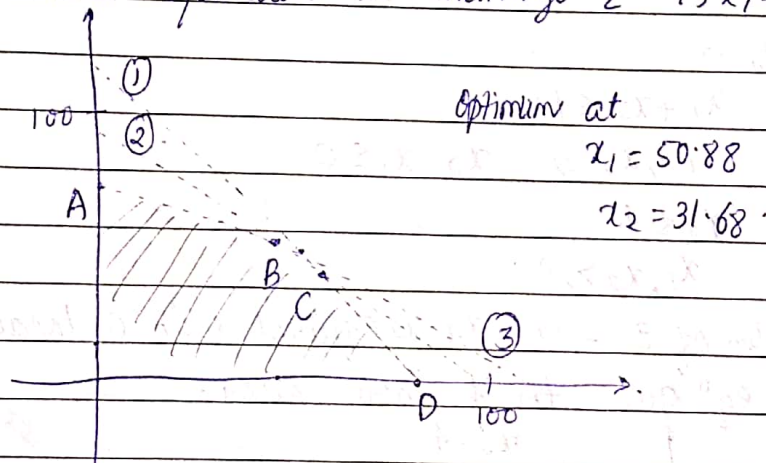 Z
①
100
②
optimum at
x₁ = 50.88
x₂ = 31.68
A
B
C
③
D
100